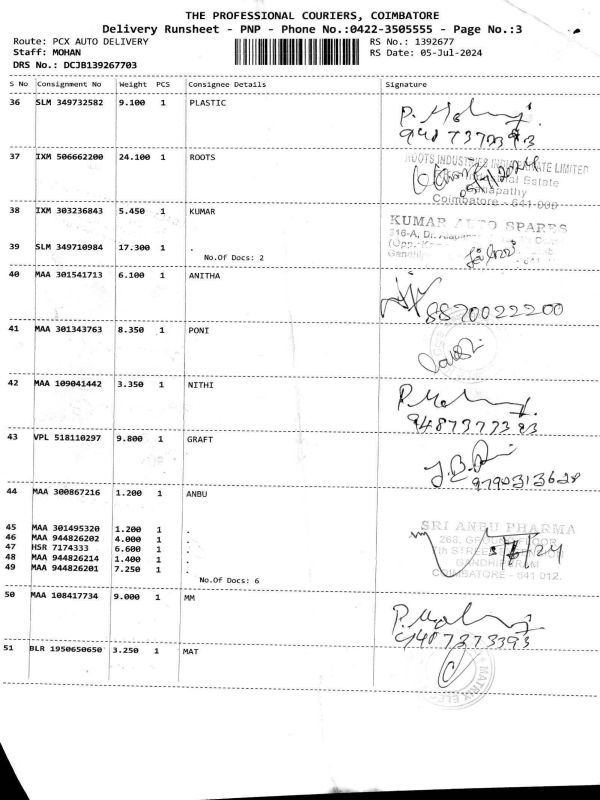 THE PROFESSIONAL COURIERS, COIMBATORE
Delivery Runsheet - PNP - Phone No.:0422-3505555 - Page No.:3
Route: PCX AUTO DELIVERY RS No.: 1392677
Staff: MOHAN RS Date: 05-Jul-2024
DRS No.: DCJB139267703
S No Consignment No Weight PCS Consignee Details Signature
36 SLM 349732582 9.100 1 PLASTIC
37 IXM 506662200 24.100 1 ROOTS
ROOTS INDUSTRIES LIMITED
Estate
Coimbatore - 641 006
38 IXM 303236843 5.450 1 KUMAR
KUMAR AUTO SPARES
316-A, Dr.
39 SLM 349710984 17.300 1 .
No.Of Docs: 2
40 MAA 301541713 6.100 1 ANITHA
8870022200
41 MAA 301343763 8.350 1 PONI
42 MAA 109041442 3.350 1 NITHI
43 VPL 518110297 9.800 1 GRAFT
9790313628
44 MAA 300867216 1.200 1 ANBU
45 MAA 301495320 1.200 1 .
46 MAA 944826202 4.000 1 .
47 HSR 7174333 6.600 1 .
48 MAA 944826214 1.400 1 .
49 MAA 944826201 7.250 1 .
No.Of Docs: 6
SRI ANBU PHARMA
263, GROUND FLOOR
7th STREET
GANDHIPURAM
COIMBATORE - 641 012.
50 MAA 108417734 9.000 1 MM
51 BLR 1950650650 3.250 1 MAT
MATRIX ELE